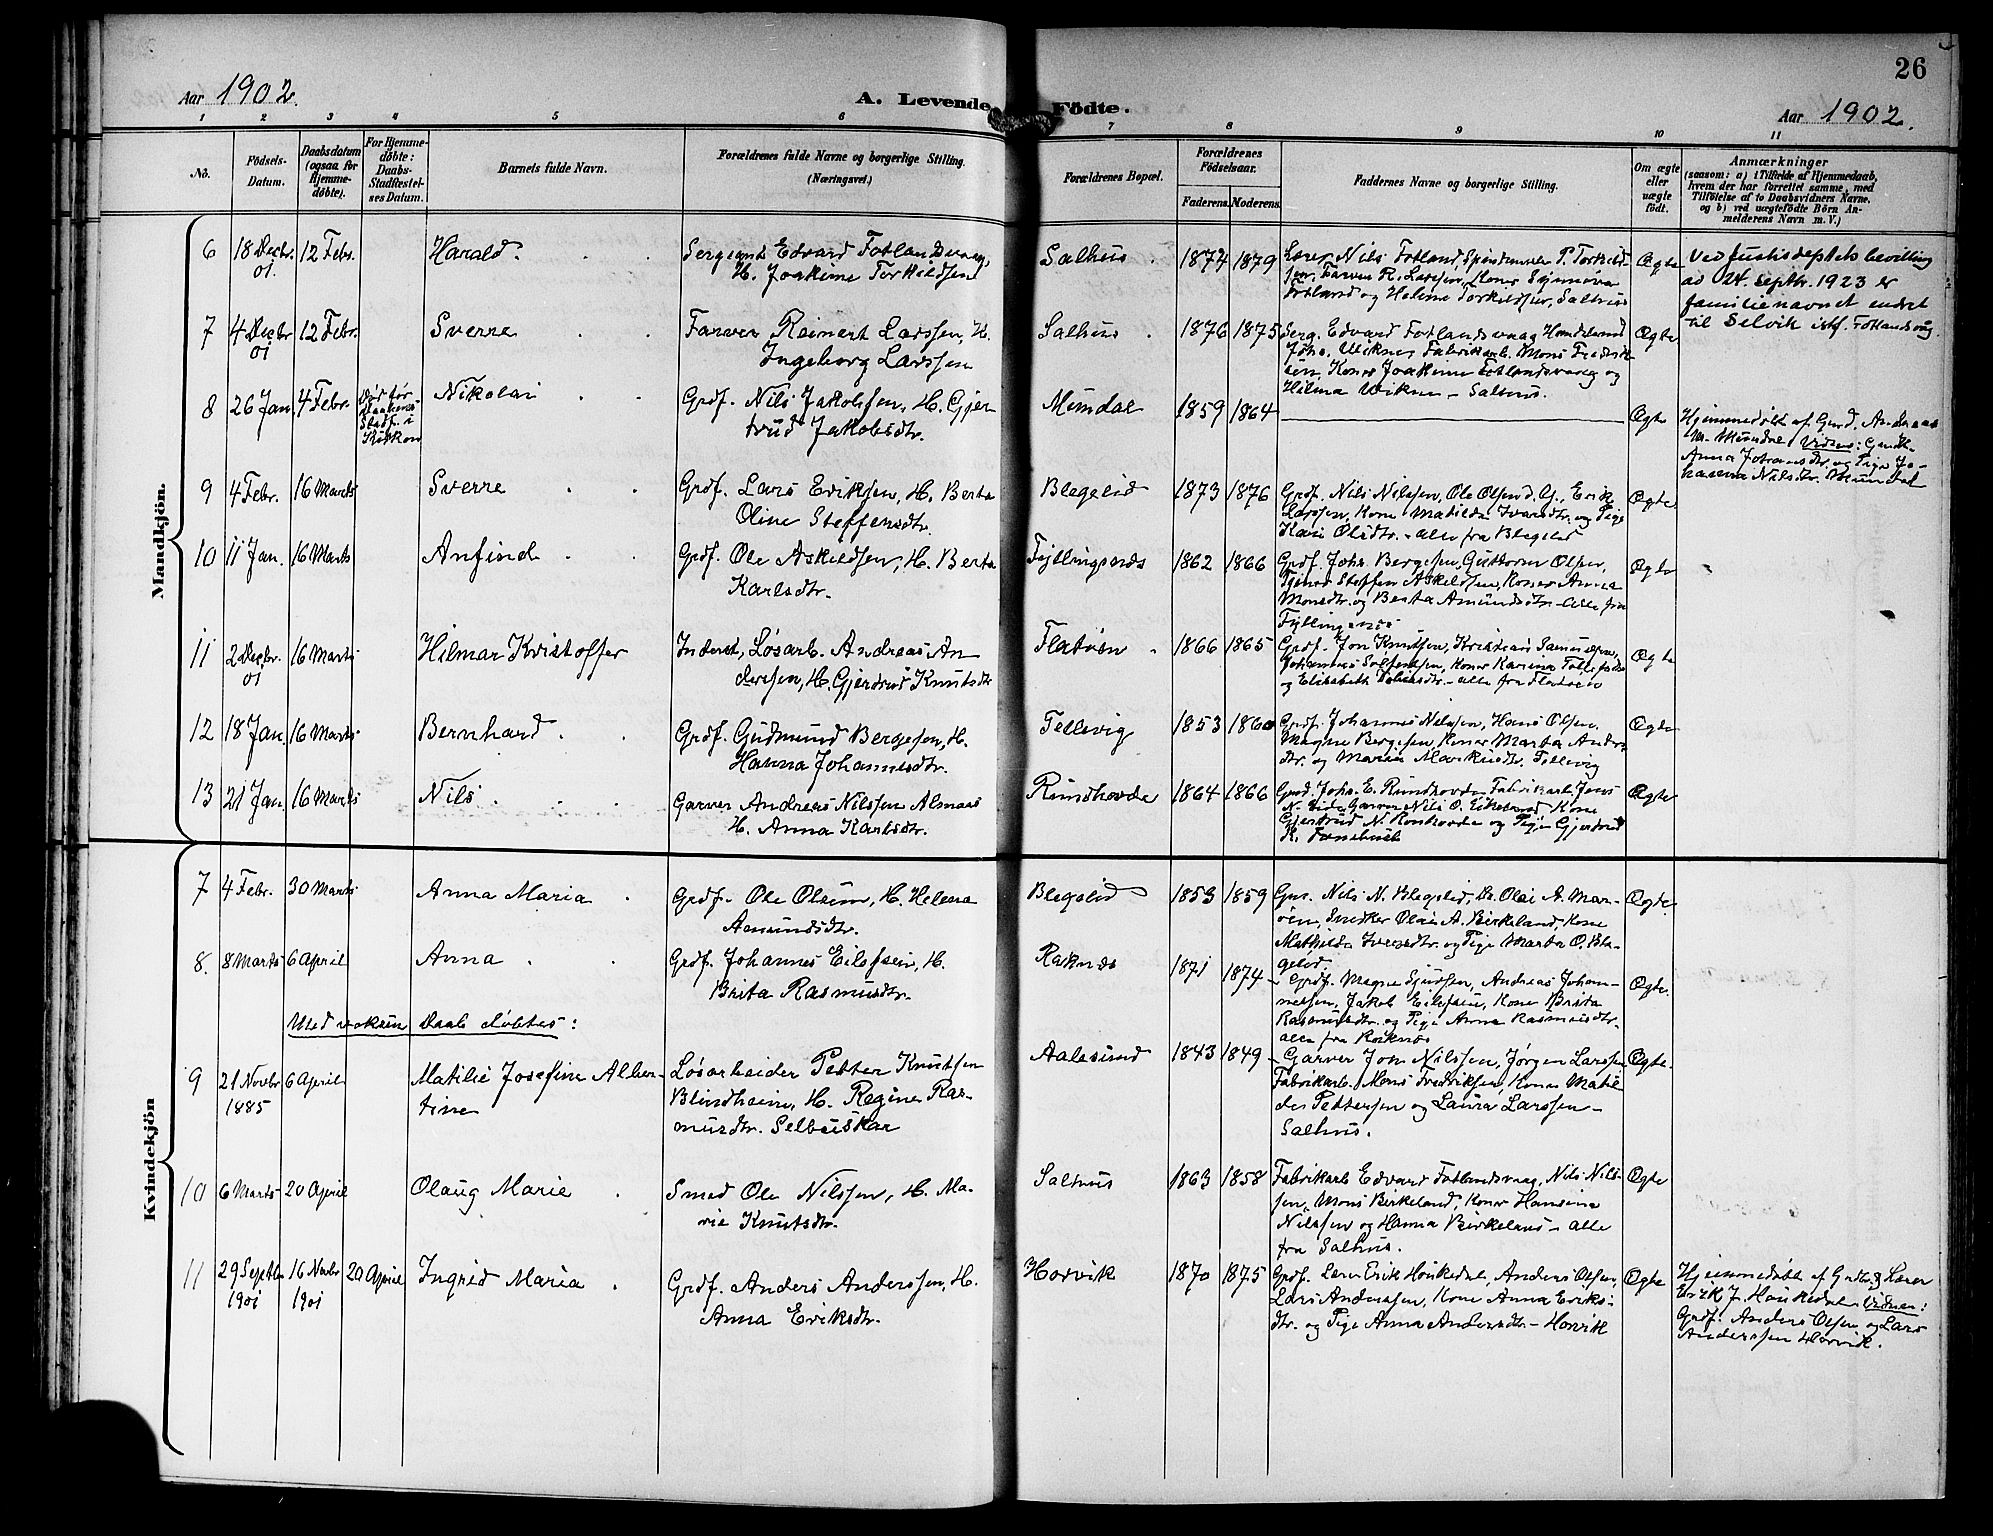 26
Aar 1902.
A. Levende Födte.
Aar 1902.
1 2 3 4 5 6 7 8 9 10 11
No.
Födsels-Datum.
Daabsdatum (ogsaa for Hjemme-döbte).
For Hjemme-döbte: Daabs-Stadfestel-ses Datum.
Barnets fulde Navn.
Forældrenes fulde Navne og borgerlige Stilling. (Næringsvei.)
Forældrenes Bopæl.
Forældrenes Födselsaar.
Faderens. Moderens.
Faddernes Navne og borgerlige Stilling.
Om ægte eller uægte födt.
Anmærkninger
(saasom: a) i Tilfælde af Hjemmedaab,
hvem der har forrettet samme, med
Tilföielse af to Daabsvidners Navne.
og b) ved uægtefödte Börn An-
melderens Navn m. V.)
Mandkjön.
6 18 Decbr. 01. 12 Febr. Harald.
Sergeant Edvard Fotlandsvaag,
H. Joakime Torkildsen
Salhus. 1874 1879
Lærer Nils Fotland, Spindemester T. Torkild-
sen, Farver R. Larssen, Koner Synnøva
Fotland og Helene Torkildsen, Salhus
Ægte
Ved Justisdeptets bevilling
av 24. septbr. 1923 er
familienavnet endret
til Selvik istf. Fotlandsvåg
7 4 Decbr 01 12 Febr. Sverre
Farver Reinert Larssen, H.
Ingeborg Larssen
Salhus. 1876 1875
Serg. Edvard Fotlandsvaag,
Johs. Wiknes, Fabrikarb. Mons Fredrik-
sen, Koner Joakime Fotlandsvaag og
Hilma Wiknes - Salhus.
Ægte
8 26 Jan. 4 Febr.
Død før
Daabens
Stadf. i
Kirken
Nikolai
Grdf. Nils Jakobsen, H. Gjer
trud Jakobsdtr.
Mundal 1859 1864
Ægte
Hjemmedøbt af Grdf. Andreas
M. Mundal Vidner: Grdk.
Anna Johansdtr. og Pige Jo-
hanna Nilsdtr. Mundal
9 4 Febr. 16 Marts Sverre
Grdf. Lars Eriksen, H. Berta
Oline Steffensdtr.
Blegelid 1873 1876
Grdf. Nils Nilssen, Ole Olsen d. y., Erik
Larssen, Kone Matilda Ivarsdtr. og Pige
Kari Olsdtr. - alle fra Blegelid
Ægte
10 11 Jan. 16 Marts Anfind
Grdf. Ole Askildsen, H. Berta
Karlsdtr.
Fyllingsnes 1862 1866
Grdf. Johs. Bergesen, Guttorm Olsen,
Tjener Steffen Askildsen, Koner Anna
Monsdtr. og Berta Amundsdtr. - alle fra
Fyllingsnes
Ægte
11 2 Decbr. 01 16 Marts Hilmar Kristoffer
Inderst, Løsarb. Andreas An
derssen, H. Gjertrud Knutsdtr
Flatøen. 1866 1865
Grdf. Jon Knutsen, Kristian Samuelsen,
Johannes Salfestsen, Koner Karina Tollefsdtr
og Elisabeth - alle fra Flatøen
Ægte
12 18 Jan. 16 Marts Bernhard.
Grdf. Gudmund Bergesen, H.
Hanna Johannesdtr.
Tellevig 1853 1860
Grdf. Johannes Nilssen, Hans Olsen,
Magne Bergesen, Koner Marta Anders
dtr. og Maria Markusdtr. Tellevig
Ægte
13 21 Jan. 16 Marts Nils.
Garver Andreas Nilssen Almaas
H. Anna Karlsdtr.
Rundhovde 1864 1866
Grdf. Johs. E. Rundhovde, Fabrikarb. Jens
N. Eide, Garver Nils O. Eikeland, Kone
Gjertrud N. Rundhovde og Pige Gjertrud
K.
Ægte
Kvindekjön
7 4 Febr. 30 Marts Anna Maria
Grdf. Ole Olsen, H. Helena
Amundsdtr.
Blegelid 1853 1859
Grf. Nils N. Blegelid, Do. Olai A. Mar-
øen, Snedker Olai A. Birkeland, Kone
Mathilda Iversdtr. og Pige Marta O. Ble-
gelid
Ægte.
8. 8 Marts 6 April Anna
Grdf. Johannes Eilefsen, H.
Brita Rasmusdtr.
Raknes 1871 1874
- Grdf. Magne Sjursen, Andreas Johan-
nessen, Jakob Eilefsen, Kone Brita
Rasmusdtr. og Pige Anna Rasmusdtr.
alle fra Raknes
Ægte.
Med voksen Daab døbtes:
9 21 Novbr 1885 6 April Matilie Josefine Alber-
tine
Løsarbeider Petter Knutsen
Blindheim, H. Regine Ras-
musdtr. Selbuskar
Aalesund 1843 1849
- Garver Jon Nilssen, Jørgen Larssen
Fabrikarb. Mons Fredriksen, Koner Matil
de Pettersen og Laura Larssen -
Salhus.
Ægte.
10 6 Marts 20 April Olaug Marie
Smed Ole Nilssen, H. Ma-
rie Knutsdtr.
Salhus 1863 1858
Fabrikarb Edvard Fotlandsvaag, Nils Nils-
sen, Mons Birkeland, Koner Hansine
Nilssen og Hanna Birkeland - alle
fra Salhus.
Ægte
11 29 Septbr 1901 16 Novbr 1901 20 April Ingrid Maria
Grdf. Anders Anderssen, H.
Anna Eriksdtr.
Horvik 1870 1875
Grdf. Lærer Erik Houkedal, Anders Olsen,
Lars Anderssen, Kone Anna Eriks-
dtr. og Pige Anna Andersdtr - Horvik
Ægte
Hjemmedøbt af Grdbr. og Lærer
Erik J. Houkedal Vidner:
Grdf. Anders Olsen og Lars
Anderssen Horvik.